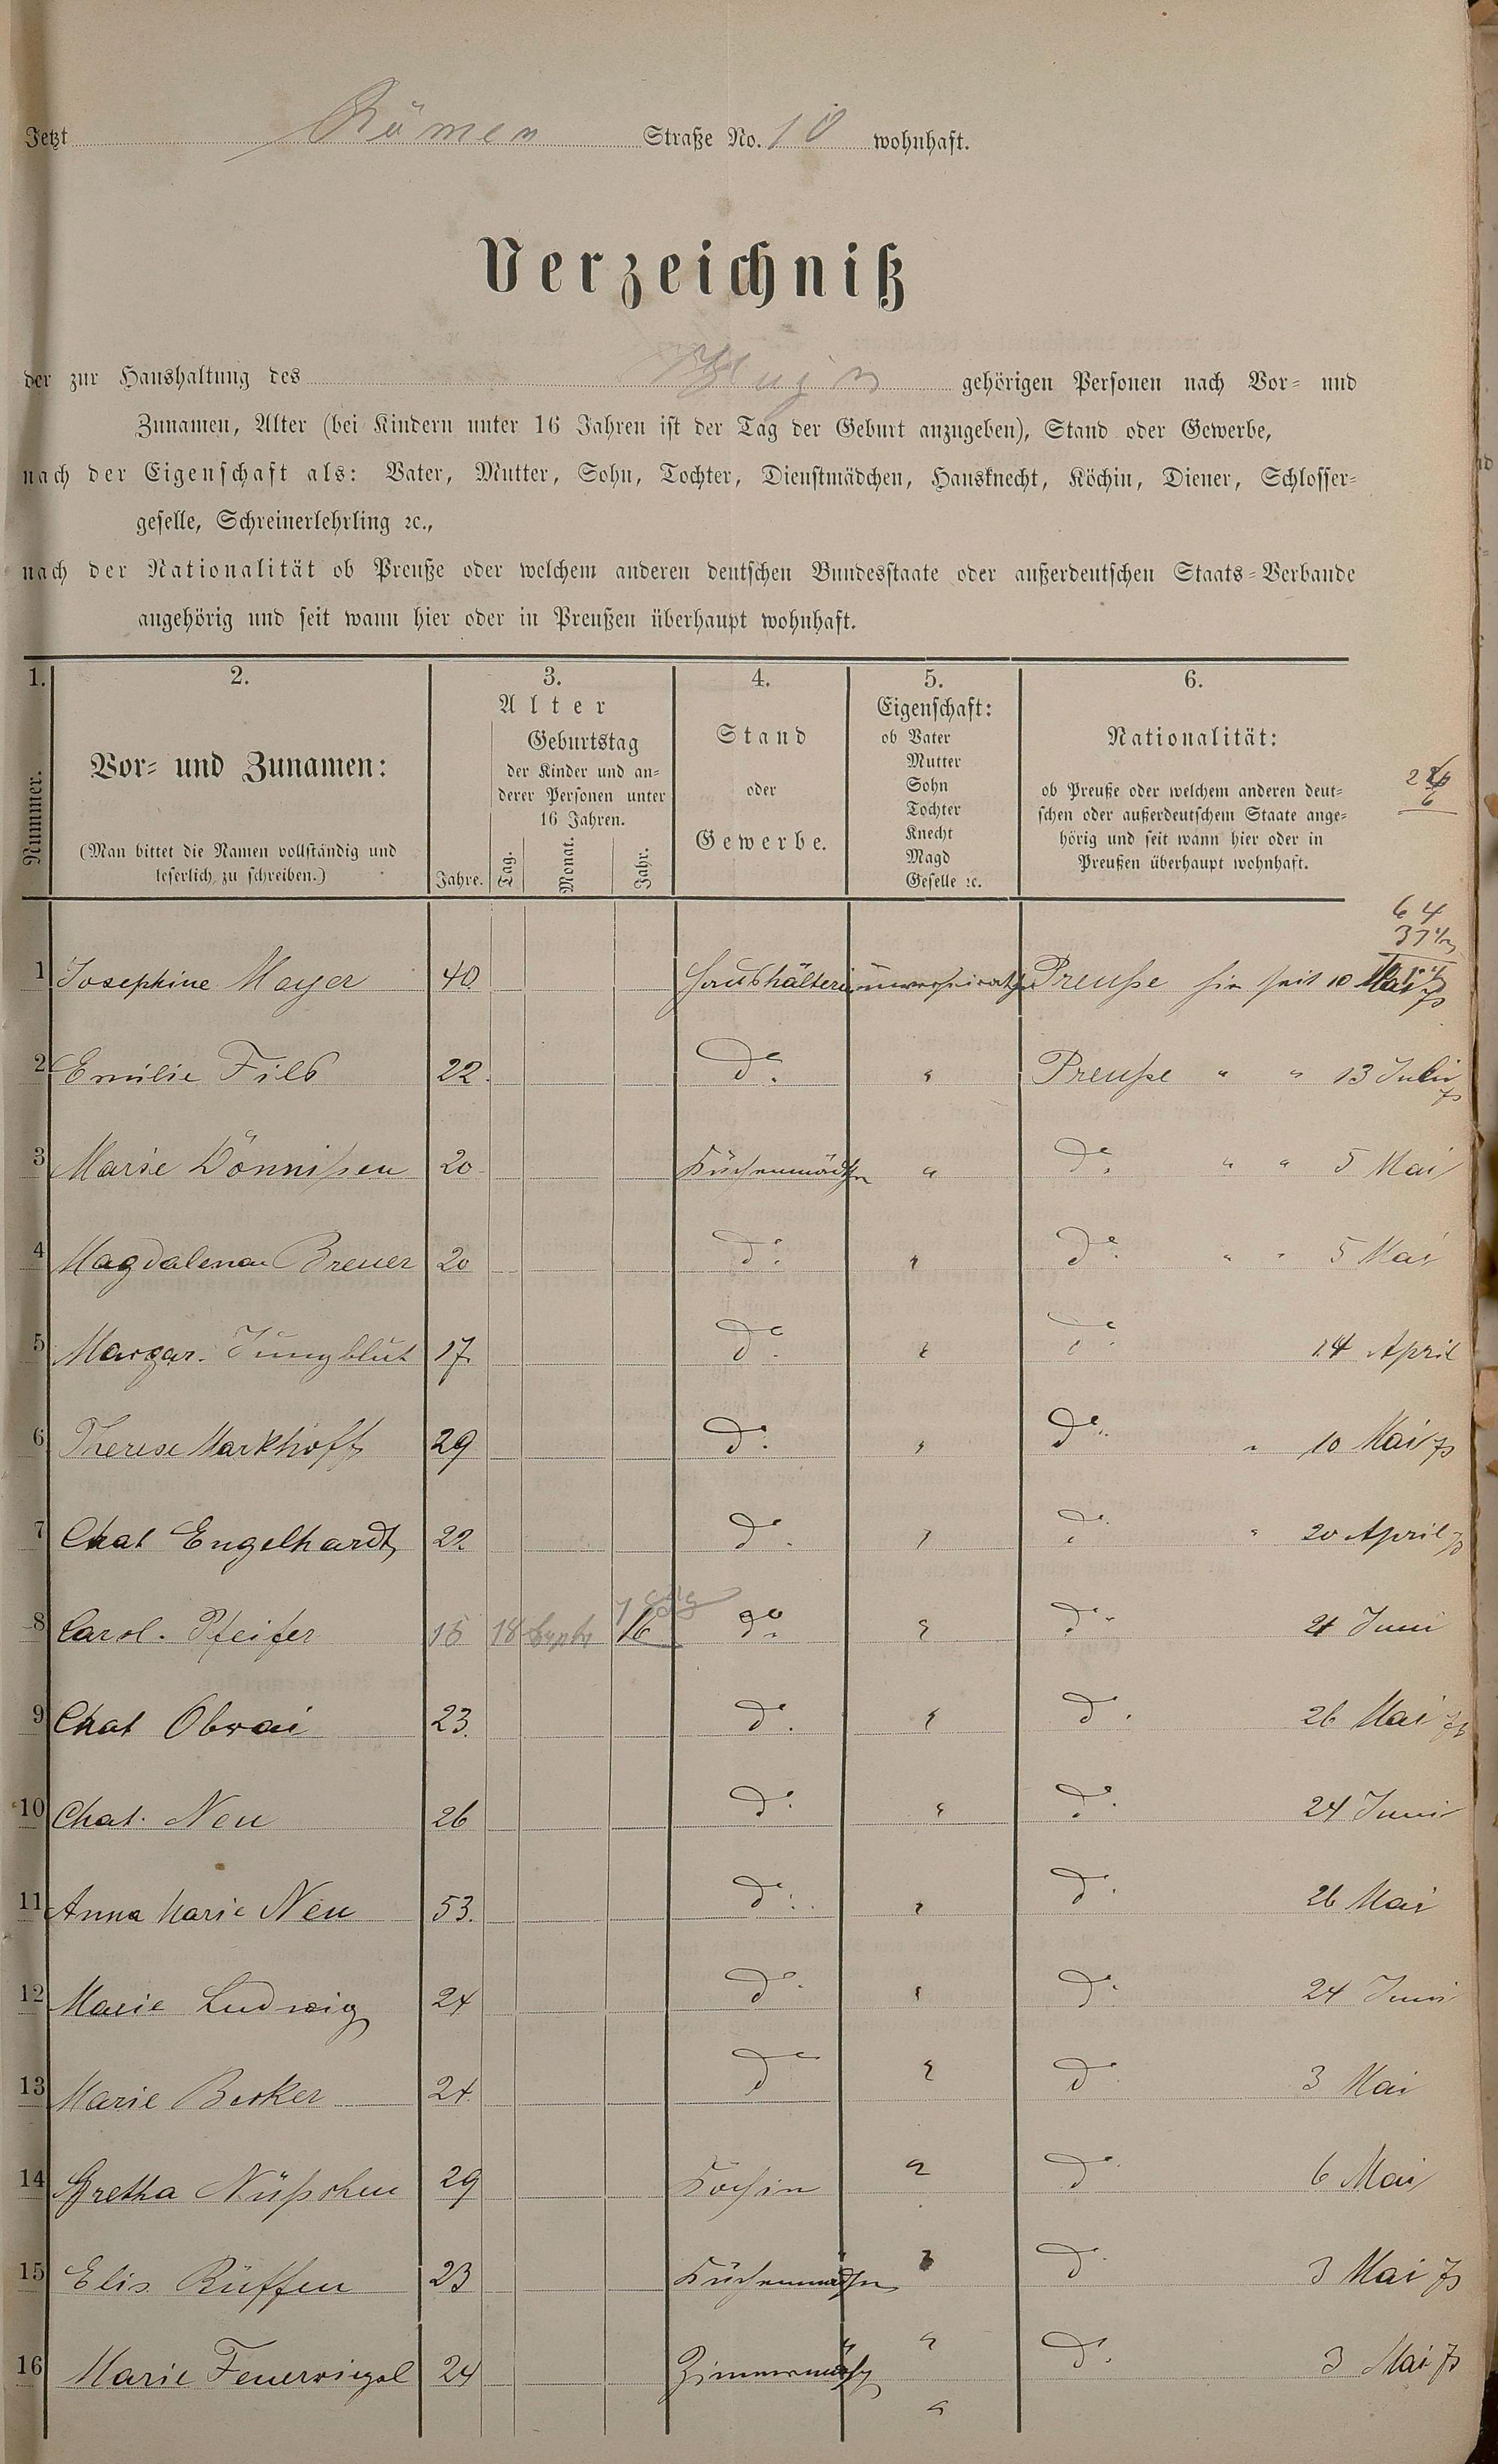 Jetzt Römer Straße No. 10 wohnhaft.
Verzeichniß
der zur Haushaltung des gehörigen Personen nach Vor- und
Zunamen, Alter (bei Kindern unter 16 Jahren ist der Tag der Geburt anzugeben), Stand oder Gewerbe,
nach der Eigenschaft als: Vater, Mutter, Sohn, Tochter, Dienstmädchen, Hausknecht, Köchin, Diener, Schlosser-
geselle, Schreinerlehrling ꝛc.,
nach der Nationalität ob Preuße oder welchem anderen deutschen Bundesstaate oder außerdeutschen Staats-Verbande
angehörig und seit wann hier oder in Preußen überhaupt wohnhaft.
1. 2. 3. 4. 5. 6.
Nummer.
Vor- und Zunamen:
(Man bittet die Namen vollständig und
leserlich zu schreiben.)
Alter
Geburtstag
der Kinder und an-
derer Personen unter
16 Jahren.
Jahre. Tag. Monat. Jahr.
Stand
oder
Gewerbe.
Eigenschaft:
ob Vater
Mutter
Sohn
Tochter
Knecht
Magd
Geselle ꝛc.
Nationalität:
ob Preuße oder welchem anderen deut-
schen oder außerdeutschem Staate ange-
hörig und seit wann hier oder in
Preußen überhaupt wohnhaft.
64
1 Josephine Meyer 40 Haushälterin unverheirathet Preuße hier seit 10 Mai
2 Emilie Fils 22 do " Preuße " " 13 Juli
3 Marie Dönnißen 20 Küchenmädchen " do " " 5 Mai
4 Magdalena Breuer 20 do " do " " 5 Mai
5 Margar. Jungblut 17 do " do 14 April
6 Therese Markhoff 29 do " do " 10 Mai
7 Chat Engelhardt 22 do " do " 20 April
8 Carol. Pfeifer 15 18 Septb 16 do " do 21 Juni
9 Chat Obrai 23 do " do 26 Mai
10 Chat. Neu 26 do " do 24 Juni
11 Anna Marie Neu 53 do " do 26 Mai
12 Marie Ludwig 24 do " do 24 Juni
13 Marie Becker 24 do " do 3 Mai
14 Gretha Nüßchen 29 Köchin " do 6 Mai
15 Elis Rüffen 23 Küchenmädchen " do 3 Mai
16 Marie Feuervigel 24 Zimmermädch " do 3 Mai